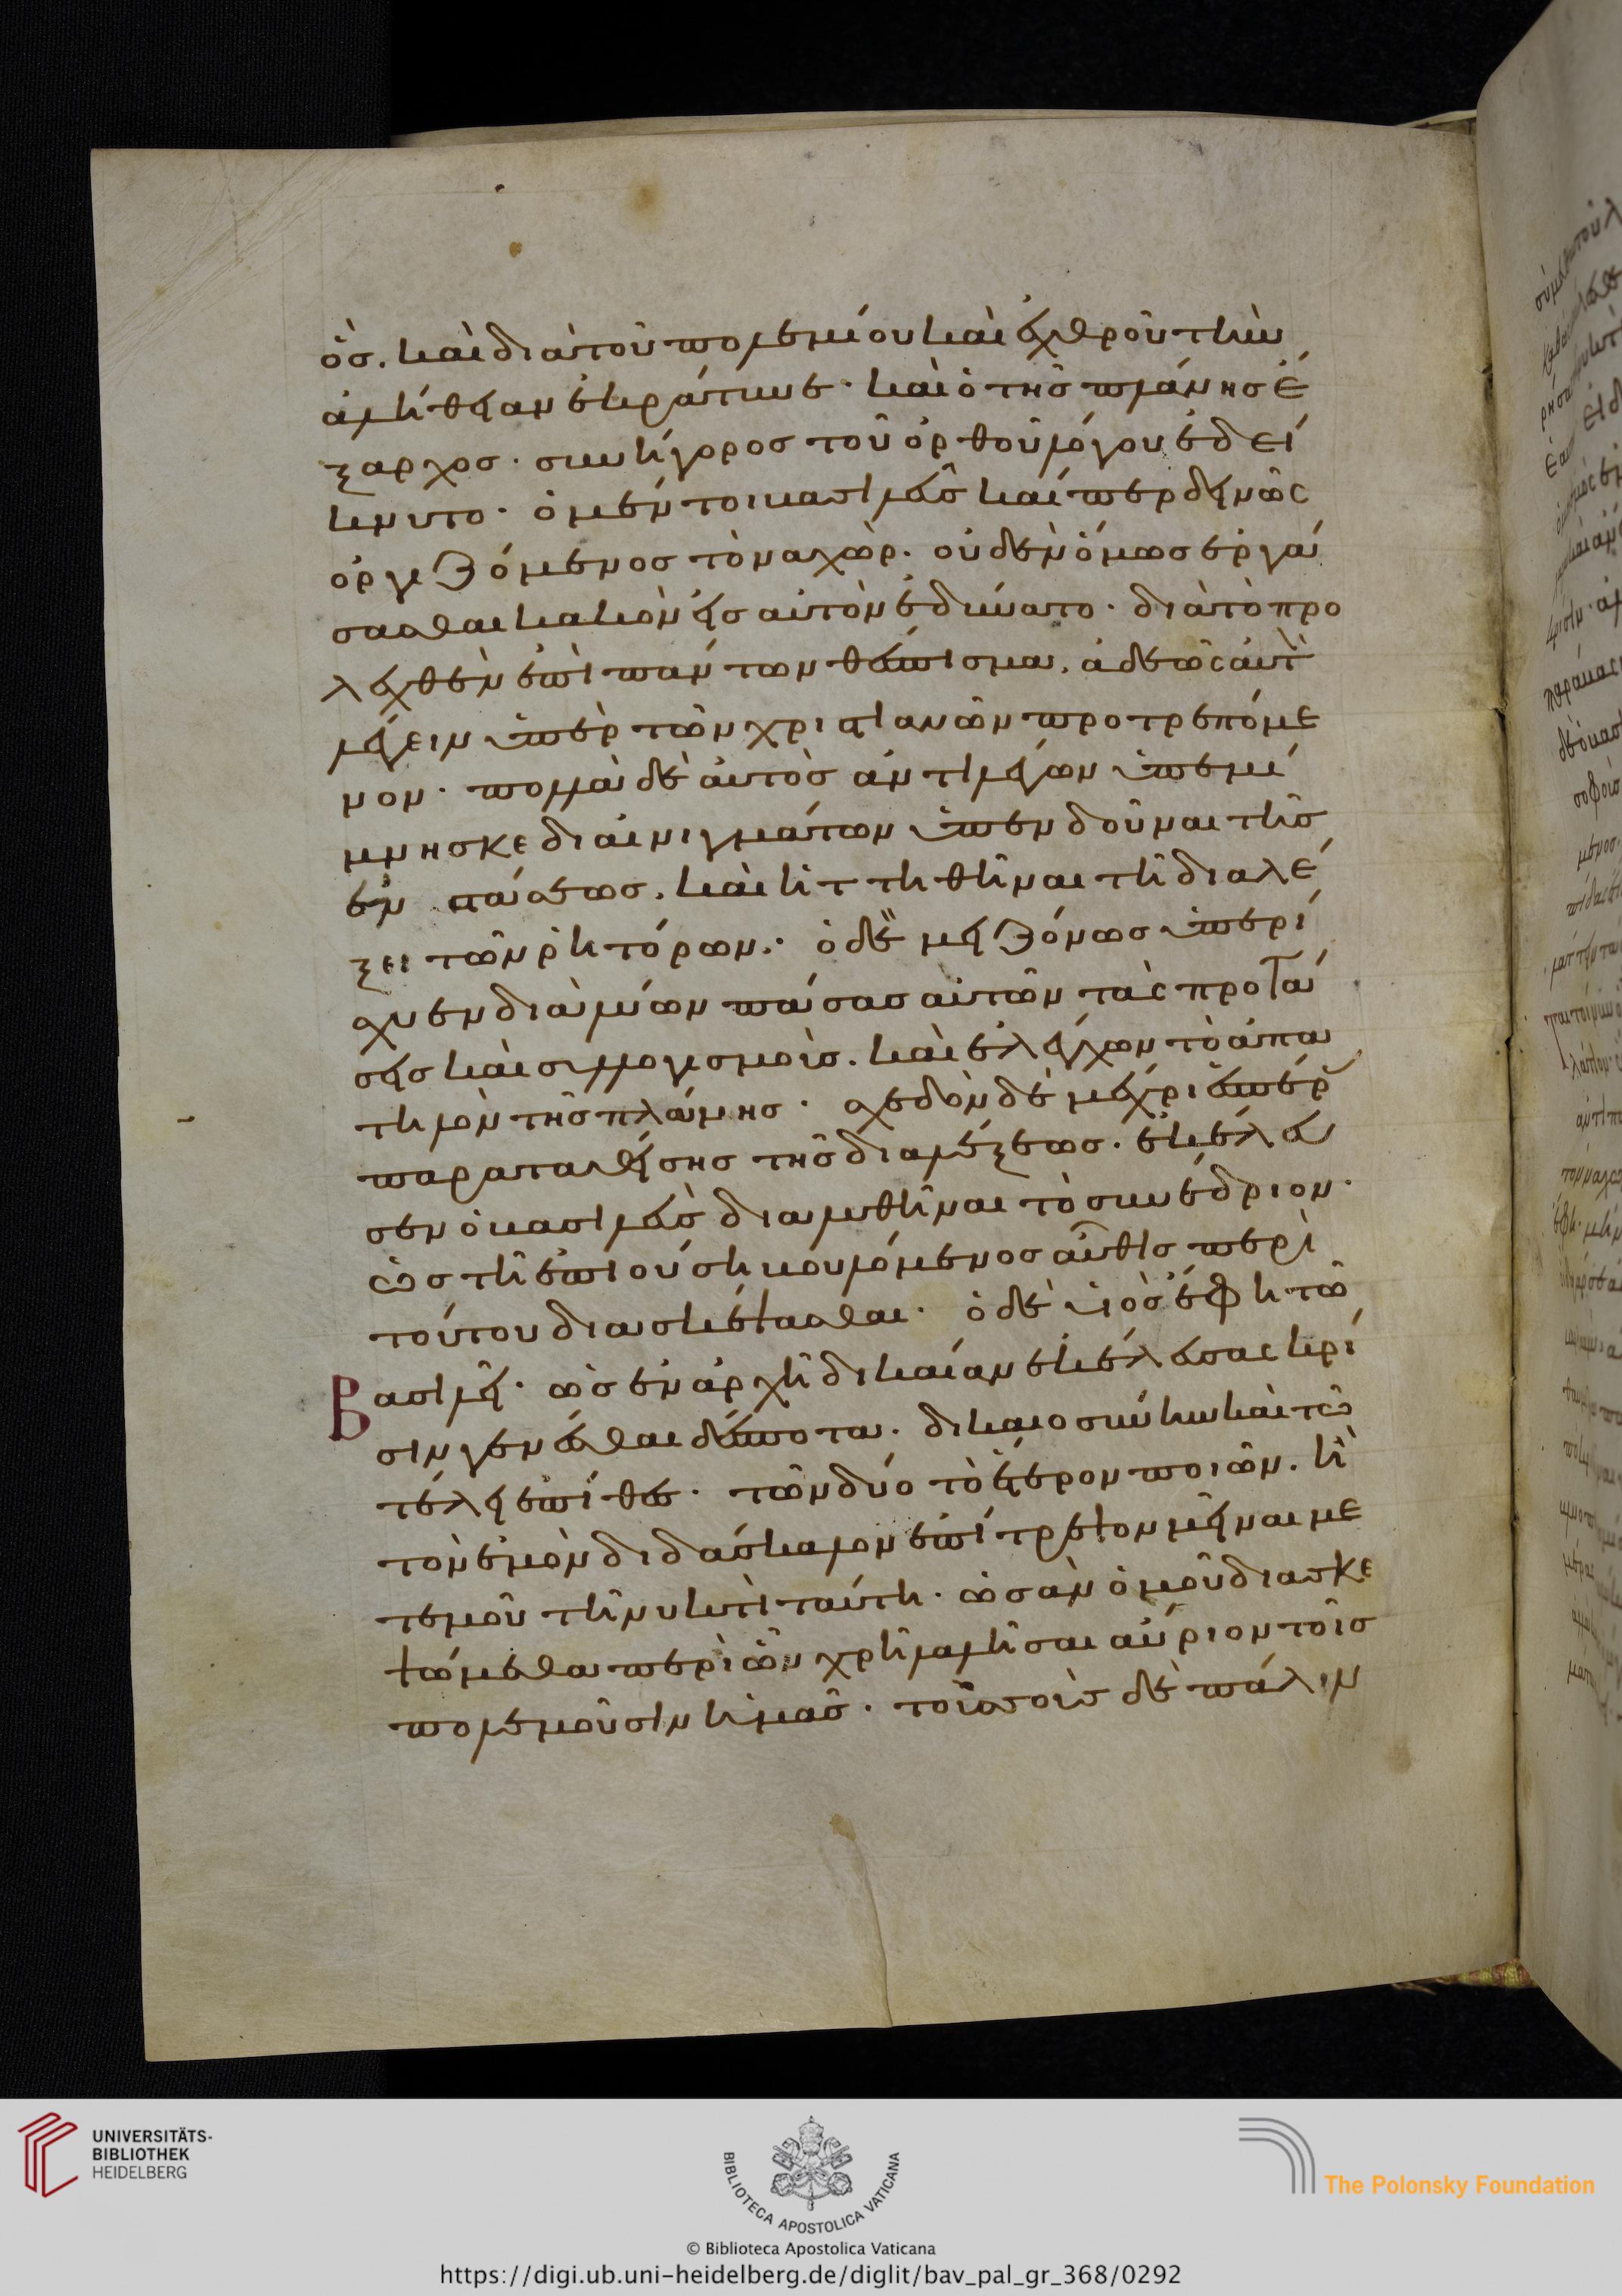 ὸς. καὶ διὰ τοῦ πολεμίου καὶ ἐχθροῦ τὴν
ἀλήθειαν ἐκράτυνε· καὶ ὁ τῆς πλάνης ἔ
ξαρχος· συνήγορος τοῦ ὀρθοῦ λόγου ἐδεί
κνυτο· ὁ μέντοι βασιλεὺς καίπερ δεινῶς
ὀργιζόμενος τὸν ναχὼρ. οὐδὲν ὅμως ἐργά
σασθαι κακὸν εἰς αὐτὸν ἐδύνατο· διὰ τὸ προ
λεχθὲν ἐπὶ πάντων θέσπισμα. ἀδεῶς αὐτῷ
λέγειν ὑπὲρ τῶν χριστιανῶν προτρεπόμε
νον· πολλὰ δὲ αὐτὸς ἀντιλέγων ὑπεμί
μνησκε δι αἰνιγμάτων ὑπενδοῦναι τῆς
ἐνστάσεως. καὶ ἡττηθῆναι τῇ διαλέ
ξει τῶν ῥητόρων· ὁ δὲ μειζόνως ὑπερί
σχυεν διαλύων πάσας αὐτῶν τὰς προτά
σεις καὶ συλλογισμοὺς. καὶ ἐλέγχων τὸ ἀπα
τηλὸν τῆς πλάνης· σχεδὸν δὲ μέχρι ἑσπέρας
παραταθείσης τῆς διαλέξεως. ἐκέλευ
σεν ὁ βασιλεὺς διαλυθῆναι τὸ συνέδριον·
ὡς τῇ ἐπιούσῃ βουλόμενος αὖθις περὶ
τούτου διασκέψασθαι· ὁ δὲ υἱὸς ἔφη τῷ
βασιλεῖ· ὡς ἐν ἀρχῇ δικαίαν ἐκέλευσας κρί
σιν γενέσθαι δέσποτα. δικαιοσύνην καὶ τῷ
τέλει ἐπίθες· τῶν δύο τὸ ἕτερον ποιῶν. ἢ
τὸν ἐμὸν διδάσκαλον ἐπίτρεψον μεῖναι με
τεμοῦ τῇ νυκτὶ ταύτη· ὡς ἂν ὁμοῦ διασκε
ψώμεθα περὶ ὧν χρὴ λαλῆσαι αὔριον τοῖς
πολεμοῦσιν ἡμᾶς· τοὺς σοὺς δὲ πάλιν
UNIVERSITÄTS-
BIBLIOTHEK
HEIDELBERG
BIBLIOTECA APOSTOLICA VATICANA
The Polonsky Foundation
© Biblioteca Apostolica Vaticana
https://digi.ub.uni-heidelberg.de/diglit/bav_pal_gr_368/0292